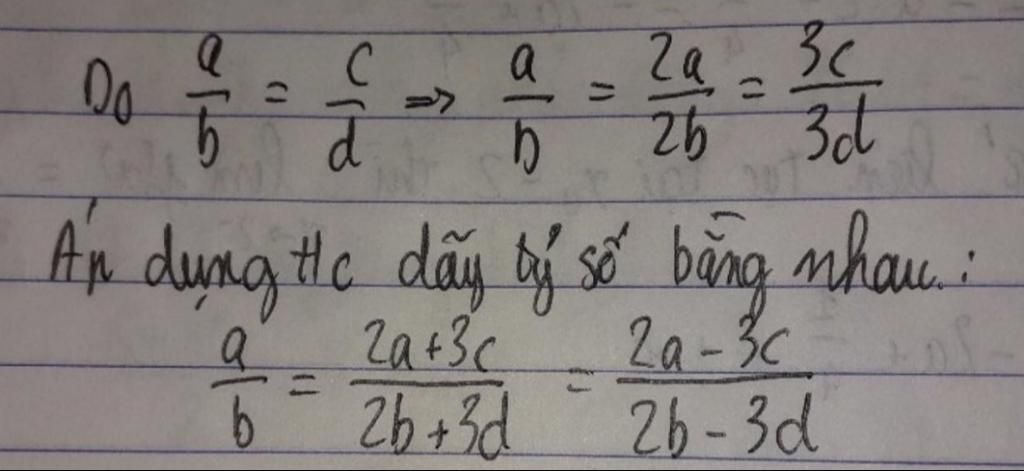 Do a/b = c/d => a/b = 2a/2b = 3c/3d
Áp dụng t/c dãy tỷ số bằng nhau :
a/b = 2a+3c/2b+3d = 2a-3c/2b-3d